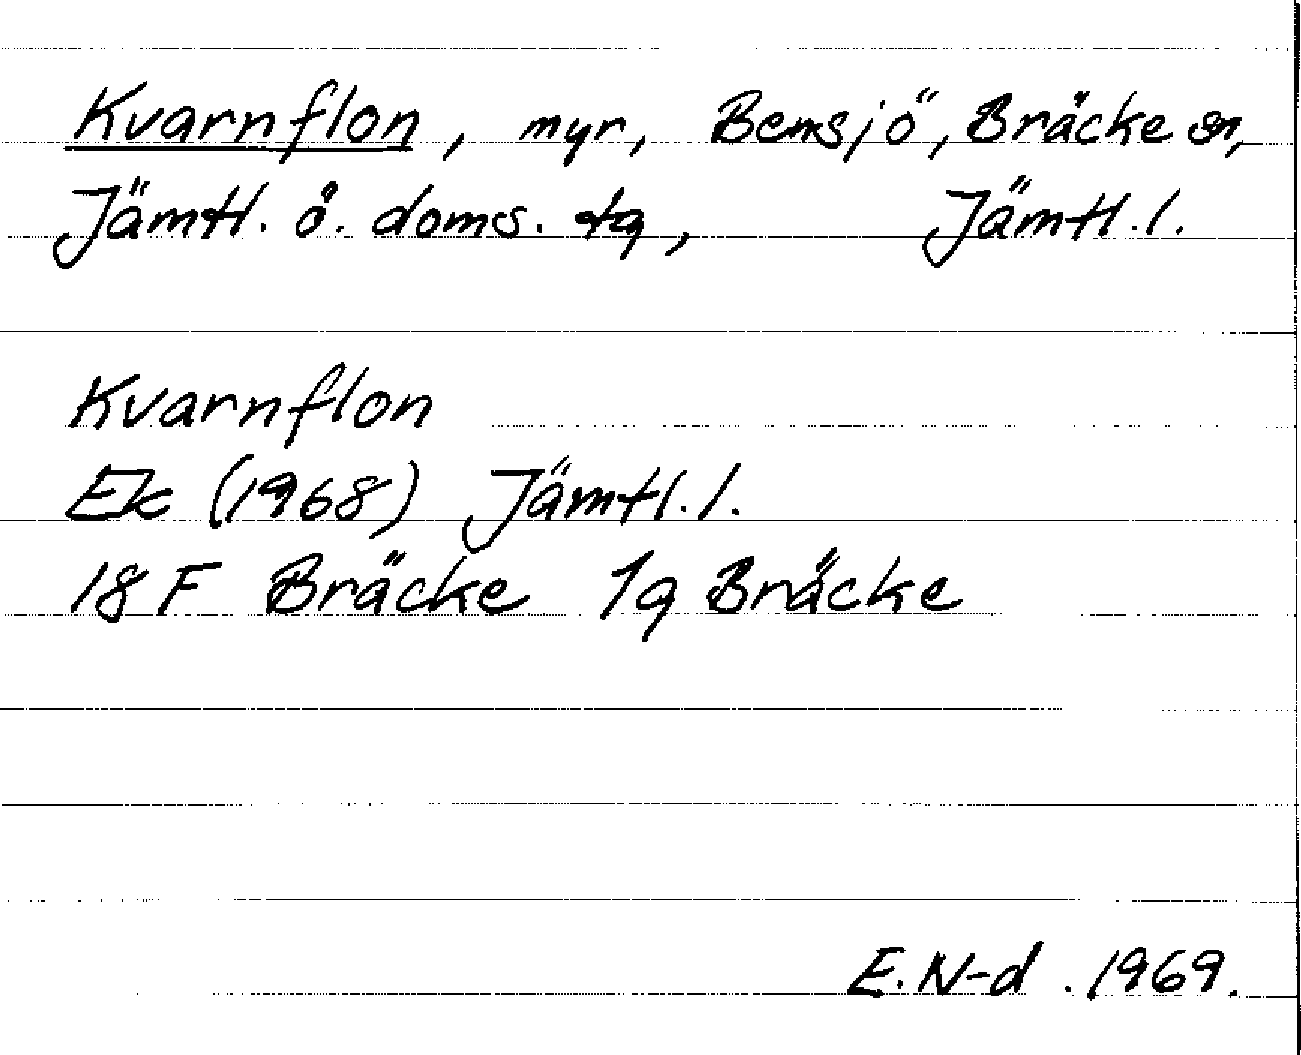 Kvarnflon, myr, Bensjö, Bräcke sn,
Jämtl. ö. doms. tg, Jämtl. l.
Kvarnflon
Ek (1968) Jämtl. l.
18 F Bräcke 1g Bräcke
E. N-d. 1969.